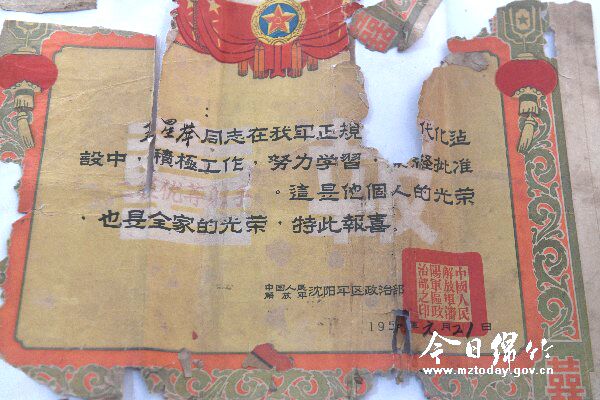 星举同志在我军正規 代化建
設中，積極工作，努力学習， 经批准
。這是他個人的光荣
，也是全家的光荣，特此報喜。
報
中国人民
解放军 沈阳军区政治部
中國人民
解放軍瀋
陽軍區政
治部之印
195 年 月21日
囍
今日绵竹
www.mztoday.gov.cn